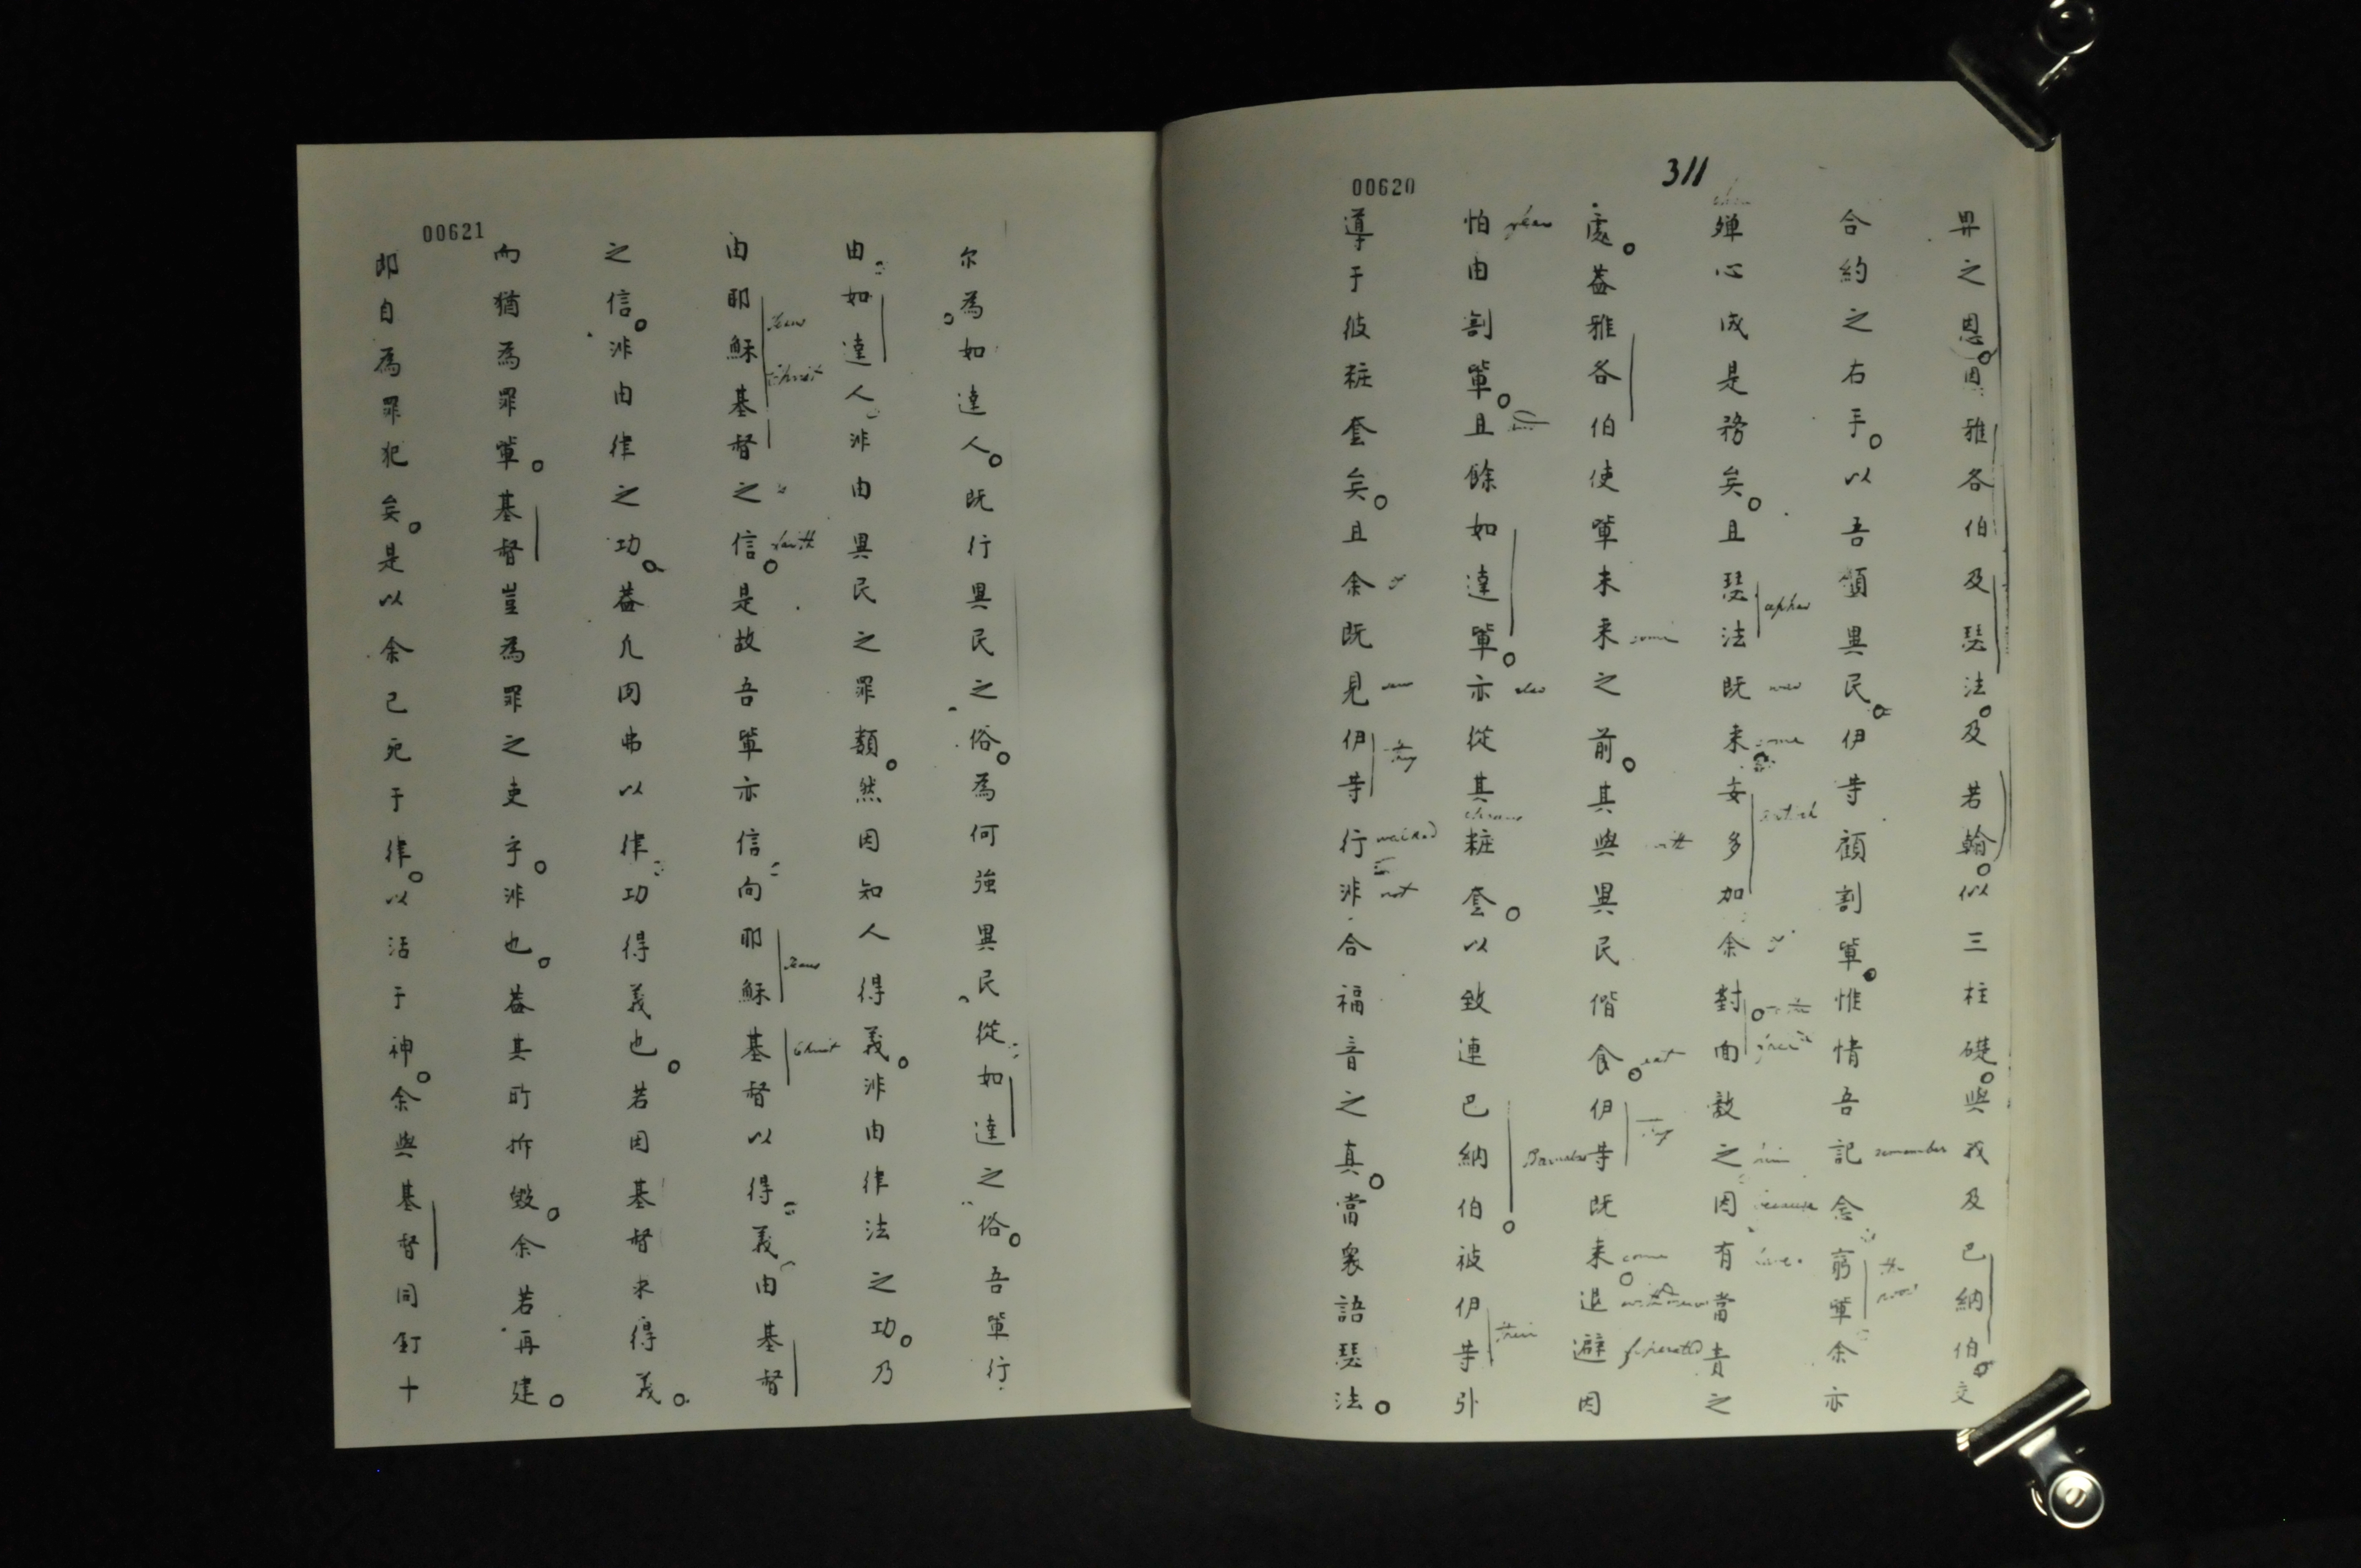 311
00620
畀之恩。因雅各伯及瑟法。及若翰。似三柱礎。與我及巴納伯。交
合約之右手。以吾願異民。伊等顧割輩。惟情吾記念窮輩余亦
殫心成是務矣。且瑟法既来安多加余對面敵之因有當責之
處。葢雅各伯使輩未来之前。其與異民偕食。伊等既来退避因
怕由割輩。且餘如達輩。亦從其粧套。以致連巴納伯被伊等引
導于彼粧套矣。且余既見伊等行非合福音之真。當衆語瑟法。
remember
the poor
cephas
now
come
him
because
have
come
with
eat
come
fear
also
Barnabas
their
saw
they
walked
not
00621
尔為如達人。既行異民之俗。為何強異民從如達之俗。吾輩行
由如達人非由異民之罪類。然因知人得義。非由律法之功。乃
由耶穌基督之信。是故吾輩亦信向耶穌基督以得義由基督
之信。非由律之功。葢凢肉弗以律功得義也。若因基督求得義。
而猶為罪輩。基督豈為罪之吏乎。非也。葢其所拆毀。余若再建。
即自為罪犯矣。是以余已死于律。以活于神。余與基督同釘十
Jesus
Christ
faith
Jesus
Christ